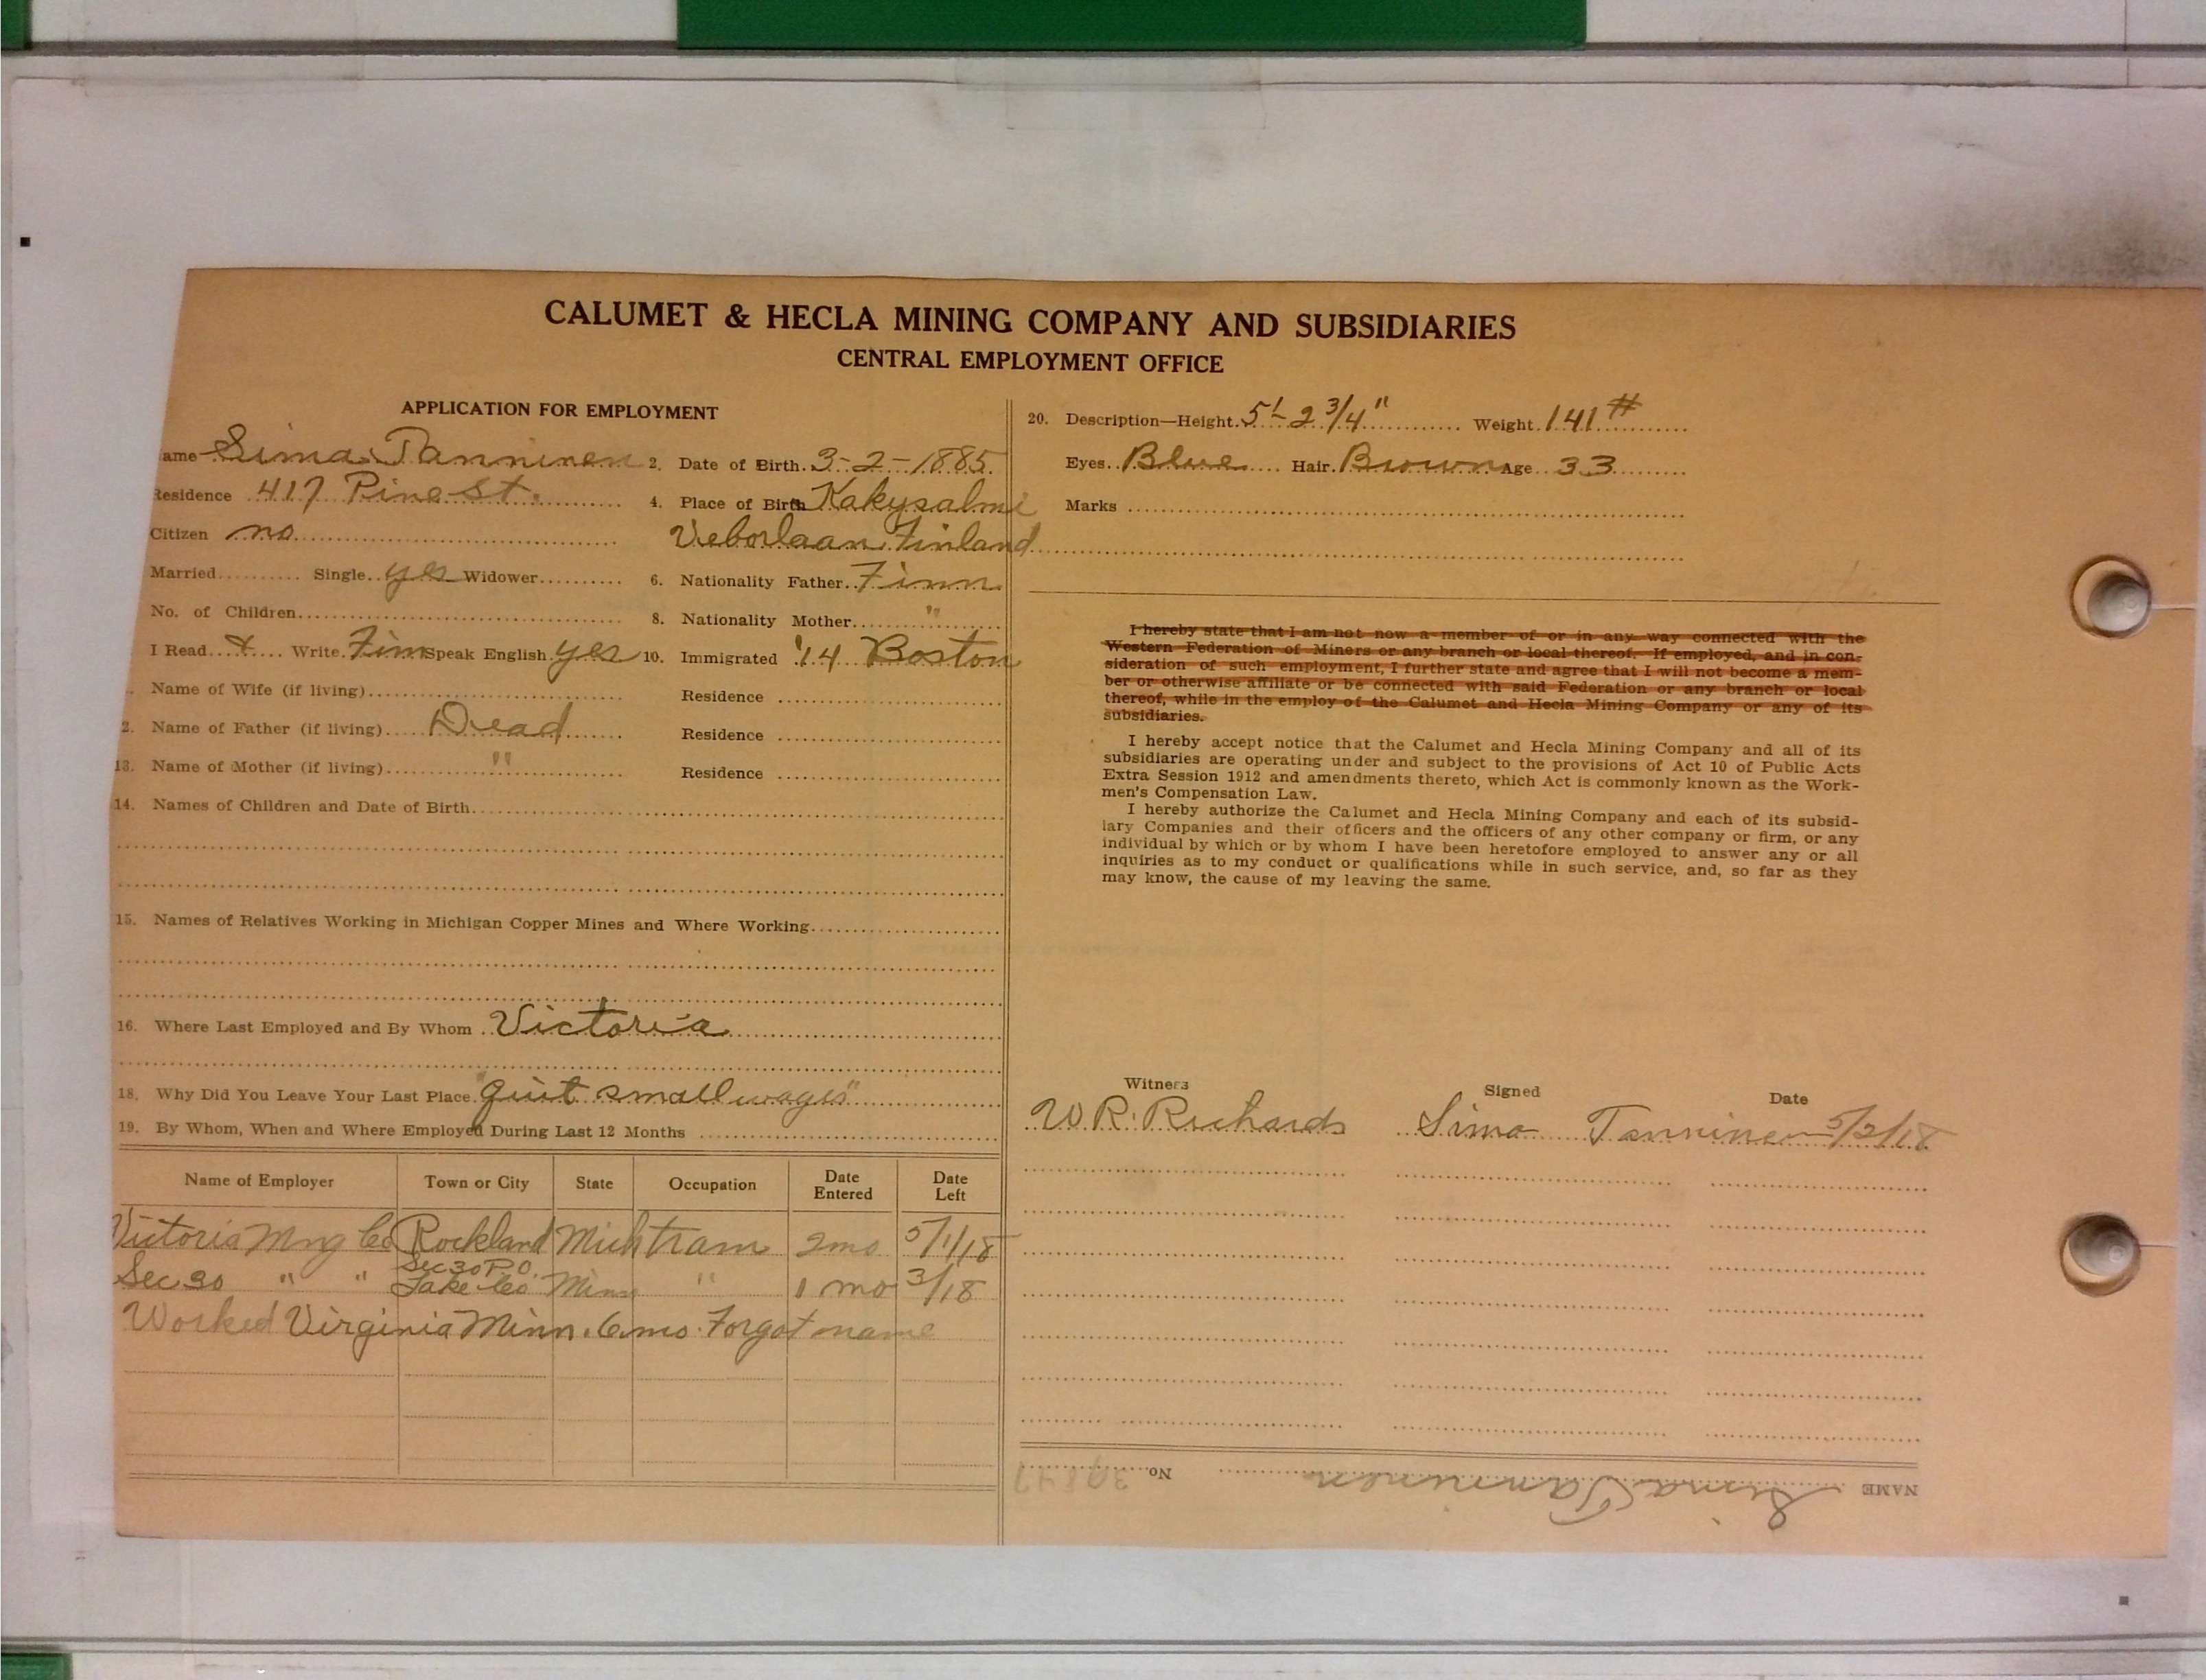 CALUMET & HECLA MINING COMPANY AND SUBSIDIARIES
CENTRAL EMPLOYMENT OFFICE
APPLICATION FOR EMPLOYMENT
ame Sima Tanninen 2. Date of Birth. 3-2-1885.
Residence 417 Pine St. 4. Place of Birth Kakysalmi
Citizen no Veborlaan Finland
Married Single yes Widower 6. Nationality Father Finn
No. of Children 8. Nationality Mother "
I Read & Write Finn Speak English yes 10. Immigrated '14 Boston
Name of Wife (if living) Residence
2. Name of Father (if living) Dead Residence
13. Name of Mother (if living) " Residence
14. Names of Children and Date of Birth
15. Names of Relatives Working in Michigan Copper Mines and Where Working
16. Where Last Employed and By Whom Victoria
18. Why Did You Leave Your Last Place "quit small wages"
19. By Whom, When and Where Employed During Last 12 Months
Name of Employer Town or City State Occupation Date Entered Date Left
Victoria Mng Co Rockland Mich tram 2mo 5/1/18
Sec 30 " " Sec 30 P.O. Lake Co Minn " 1 mo 3/18
Worked Virginia Minn. 6mo. Forgot name
20. Description—Height. 5'- 2 3/4" Weight. 141 #
Eyes Blue Hair. Brown Age 33
Marks
I hereby state that I am not now a member of or in any way connected with the
Western Federation of Miners or any branch or local thereof. If employed, and in con-
sideration of such employment, I further state and agree that I will not become a mem-
ber or otherwise affiliate or be connected with said Federation or any branch or local
thereof, while in the employ of the Calumet and Hecla Mining Company or any of its
subsidiaries.
I hereby accept notice that the Calumet and Hecla Mining Company and all of its
subsidiaries are operating under and subject to the provisions of Act 10 of Public Acts
Extra Session 1912 and amendments thereto, which Act is commonly known as the Work-
men's Compensation Law.
I hereby authorize the Calumet and Hecla Mining Company and each of its subsid-
iary Companies and their officers and the officers of any other company or firm, or any
individual by which or by whom I have been heretofore employed to answer any or all
inquiries as to my conduct or qualifications while in such service, and, so far as they
may know, the cause of my leaving the same.
Witness Signed Date
W. R. Richards Simo Tanninen 5/2/18
NAME Sima Tanninen No.